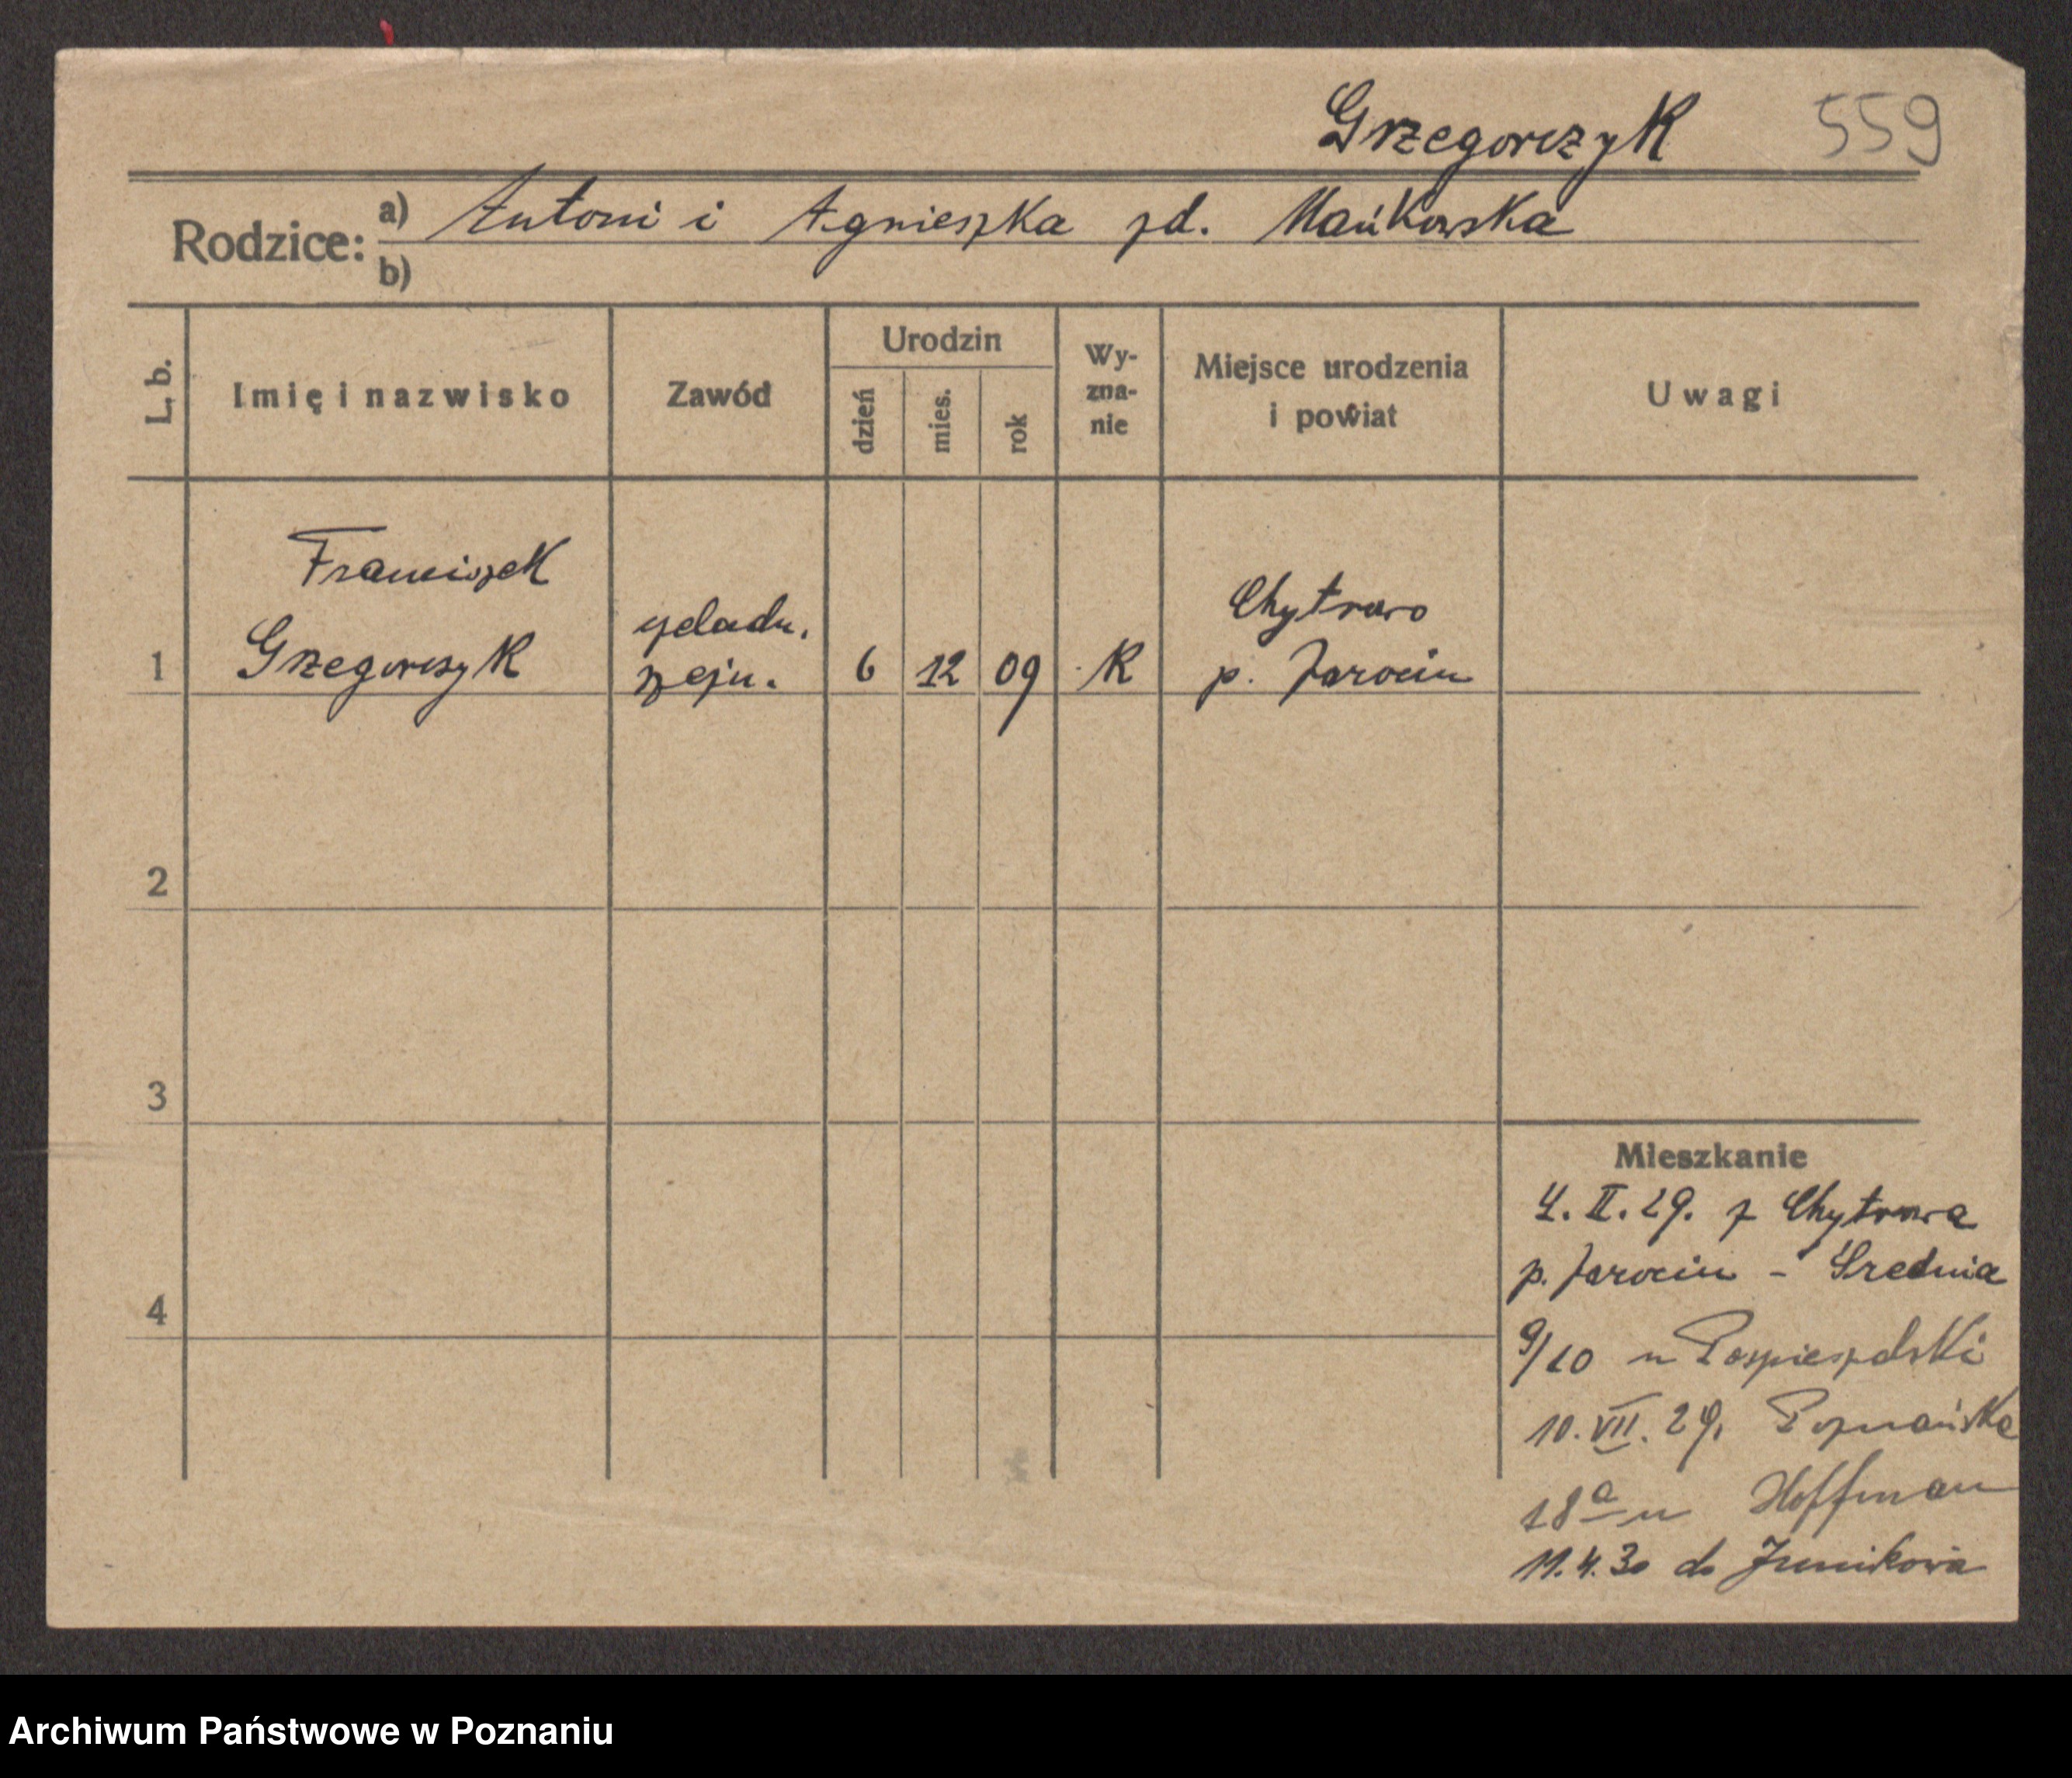 Grzegorczyk 559
Rodzice: a) Antoni i Agnieszka zd. Mańkowska
b)
L. b. Imię i nazwisko Zawód Urodzin dzień mies. rok Wy-zna-nie Miejsce urodzenia i powiat Uwagi
Franciszek
czeladn. Chytrowo
1 Grzegorczyk rzeźn. 6 12 09 K p. Jarocin
2
3
Mieszkanie
4. II. 29. z Chytrowa
p. Jarocin - Średnia
4
9/10 u Pospieszalski
10. VII. 29. Poznańska
18a u Hoffman
11.4.30 do Junikowa
Archiwum Państwowe w Poznaniu